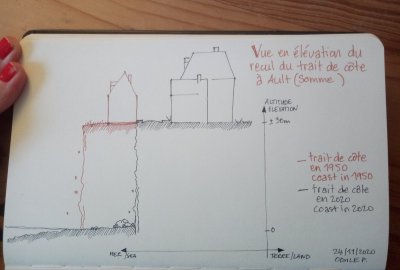 Vue en élévation du
recul du trait de côte
à Ault (Somme)
ALTITUDE
ELEVATION
± 30m
trait de côte
en 1950
coast in 1950
trait de côte
en 2020
coast in 2020
0
MER/SEA
TERRE/LAND
24/11/2020